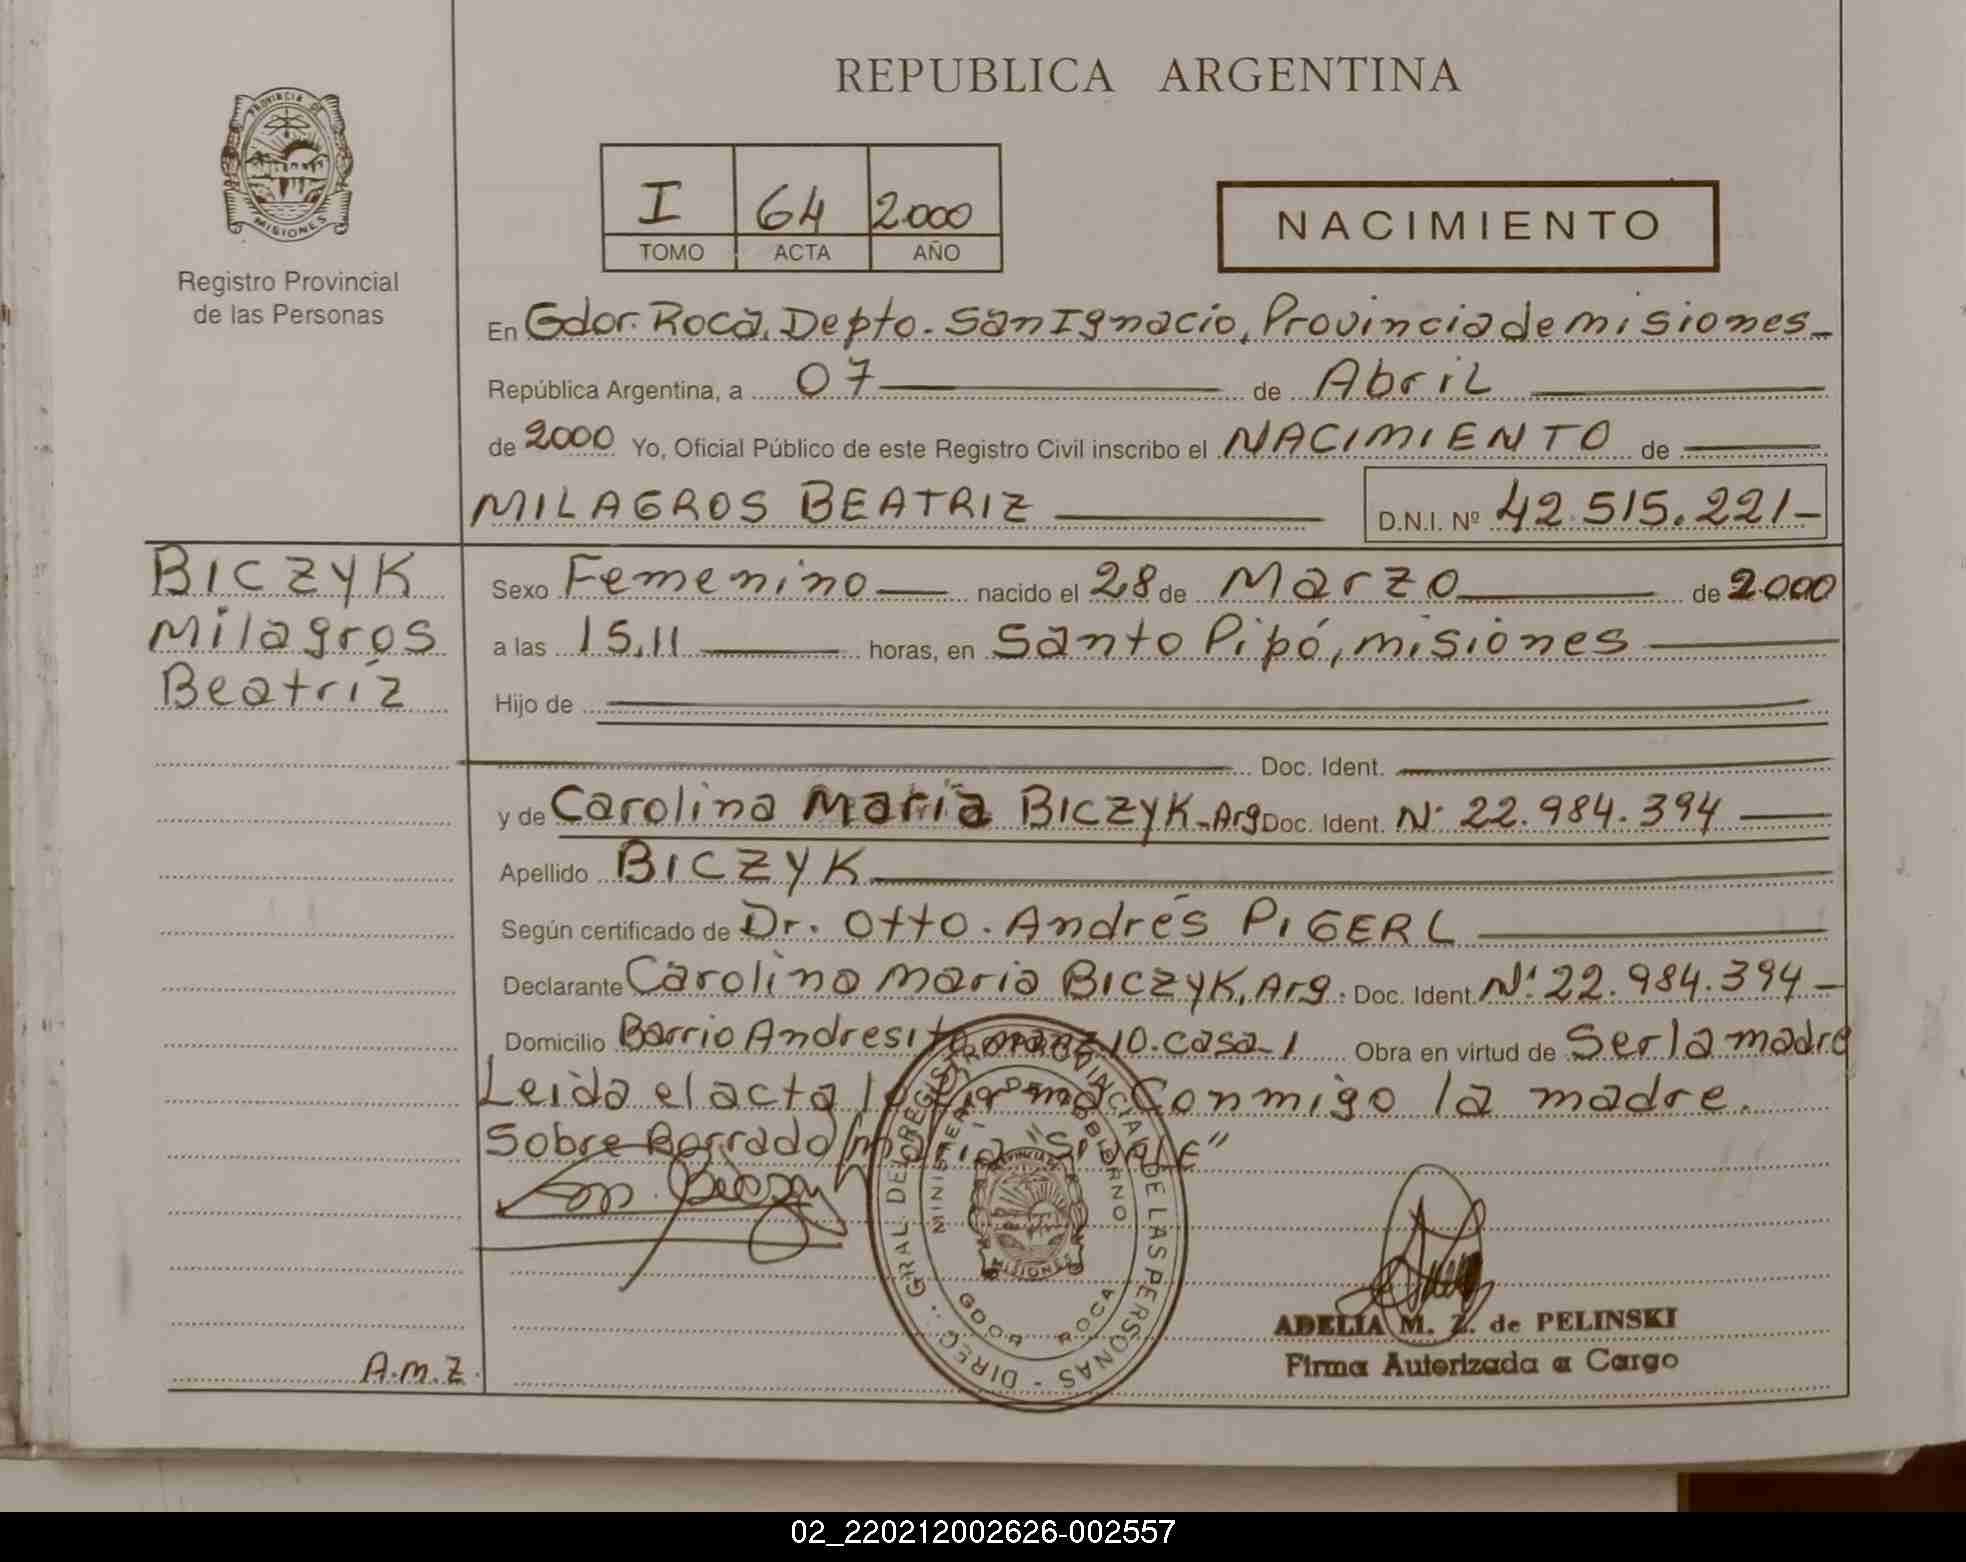 REPUBLICA ARGENTINA
PROVINCIA DE
MISIONES
Registro Provincial
de las Personas
I 64 2000
TOMO ACTA AÑO
NACIMIENTO
En Gdor. Roca, Depto. San Ignacio, Provincia de misiones
República Argentina, a 07 de Abril
de 2000 Yo, Oficial Público de este Registro Civil inscribo el NACIMIENTO de
MILAGROS BEATRIZ D.N.I. Nº 42.515.221-
BICZYK
Milagros
Beatriz
Sexo Femenino nacido el 28 de Marzo de 2000
a las 15,11 horas, en Santo Pipó, misiones
Hijo de
Doc. Ident.
y de Carolina Maria BICZYK-Arg Doc. Ident. Nº 22.984.394
Apellido BICZYK
Según certificado de Dr. Otto. Andrés PIGERL
Declarante Carolina Maria BICZYK, Arg. Doc. Ident. Nº 22.984.394-
Domicilio Barrio Andresito manz 10. casa-1 Obra en virtud de Ser la madre
Leida el acta la firma Conmigo la madre.
Sobre Borrado/maria "SI VALE"
DIREC. GRAL DEL REGISTRO PROVINCIAL DE LAS PERSONAS
MINISTERIO DE GOBIERNO
PROVINCIA DE
MISIONES
GDOR ROCA
ADELIA M. Z. de PELINSKI
Firma Autorizada a Cargo
A.M.Z.
02_220212002626-002557